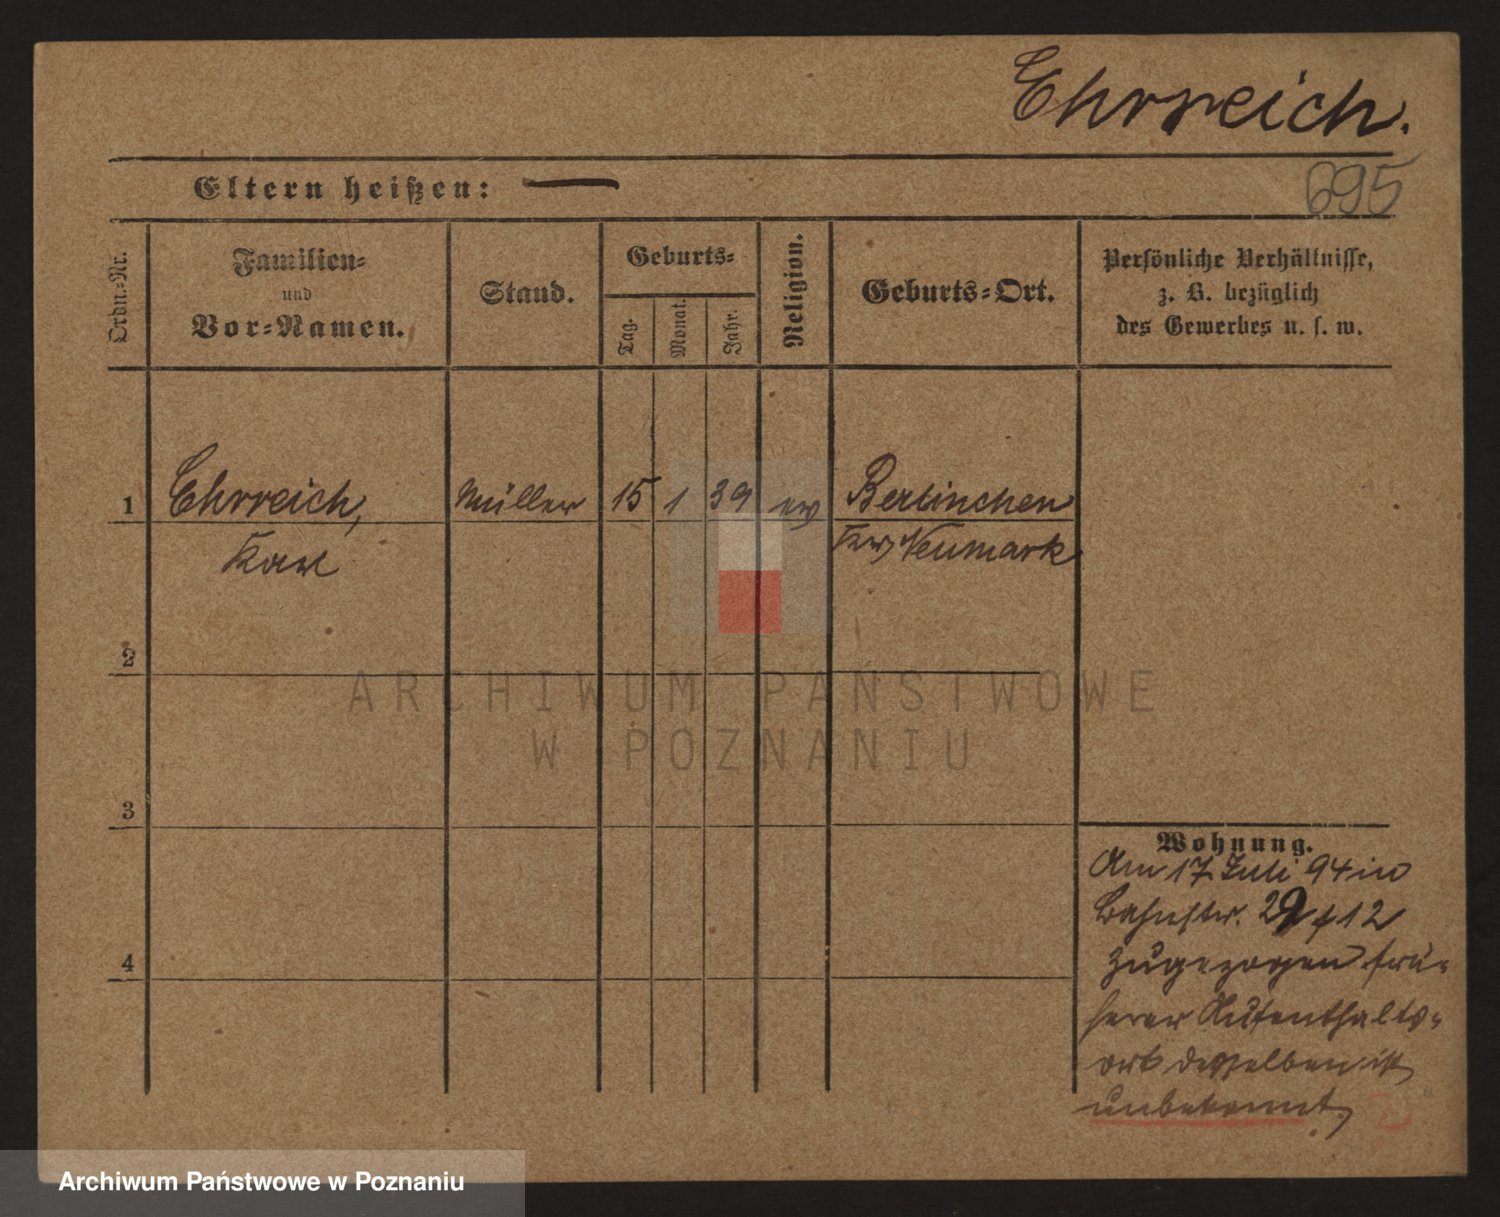 Ehrreich.
Eltern heißen: —
695
Ordn.-Nr.
Familien-
und
Vor-Namen.
Stand.
Geburts-
Tag.
Monat.
Jahr.
Religion.
Geburts-Ort.
Persönliche Verhältnisse,
z. B. bezüglich
des Gewerbes u. s. w.
1
Ehrreich,
Karl
Müller
15
1
39
ev
Berlinchen
Neumark
2
ARCHIWUM PAŃSTWOWE
W POZNANIU
3
4
Wohnung.
Am 17 Juli 94 in
Bahnstr. 29 f 12
zugezogen frü-
herer Aufenthalts-
ort desselben ist
unbekannt,
Archiwum Państwowe w Poznaniu